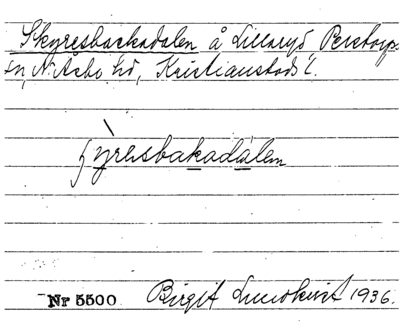 Skyresbackadalen å Lillaryd Perstorps
sn, N. Åsbo hd, Kristianstads l.
ʃyresbakadalen
Nr 5500 Birgit Lundkvist 1936.